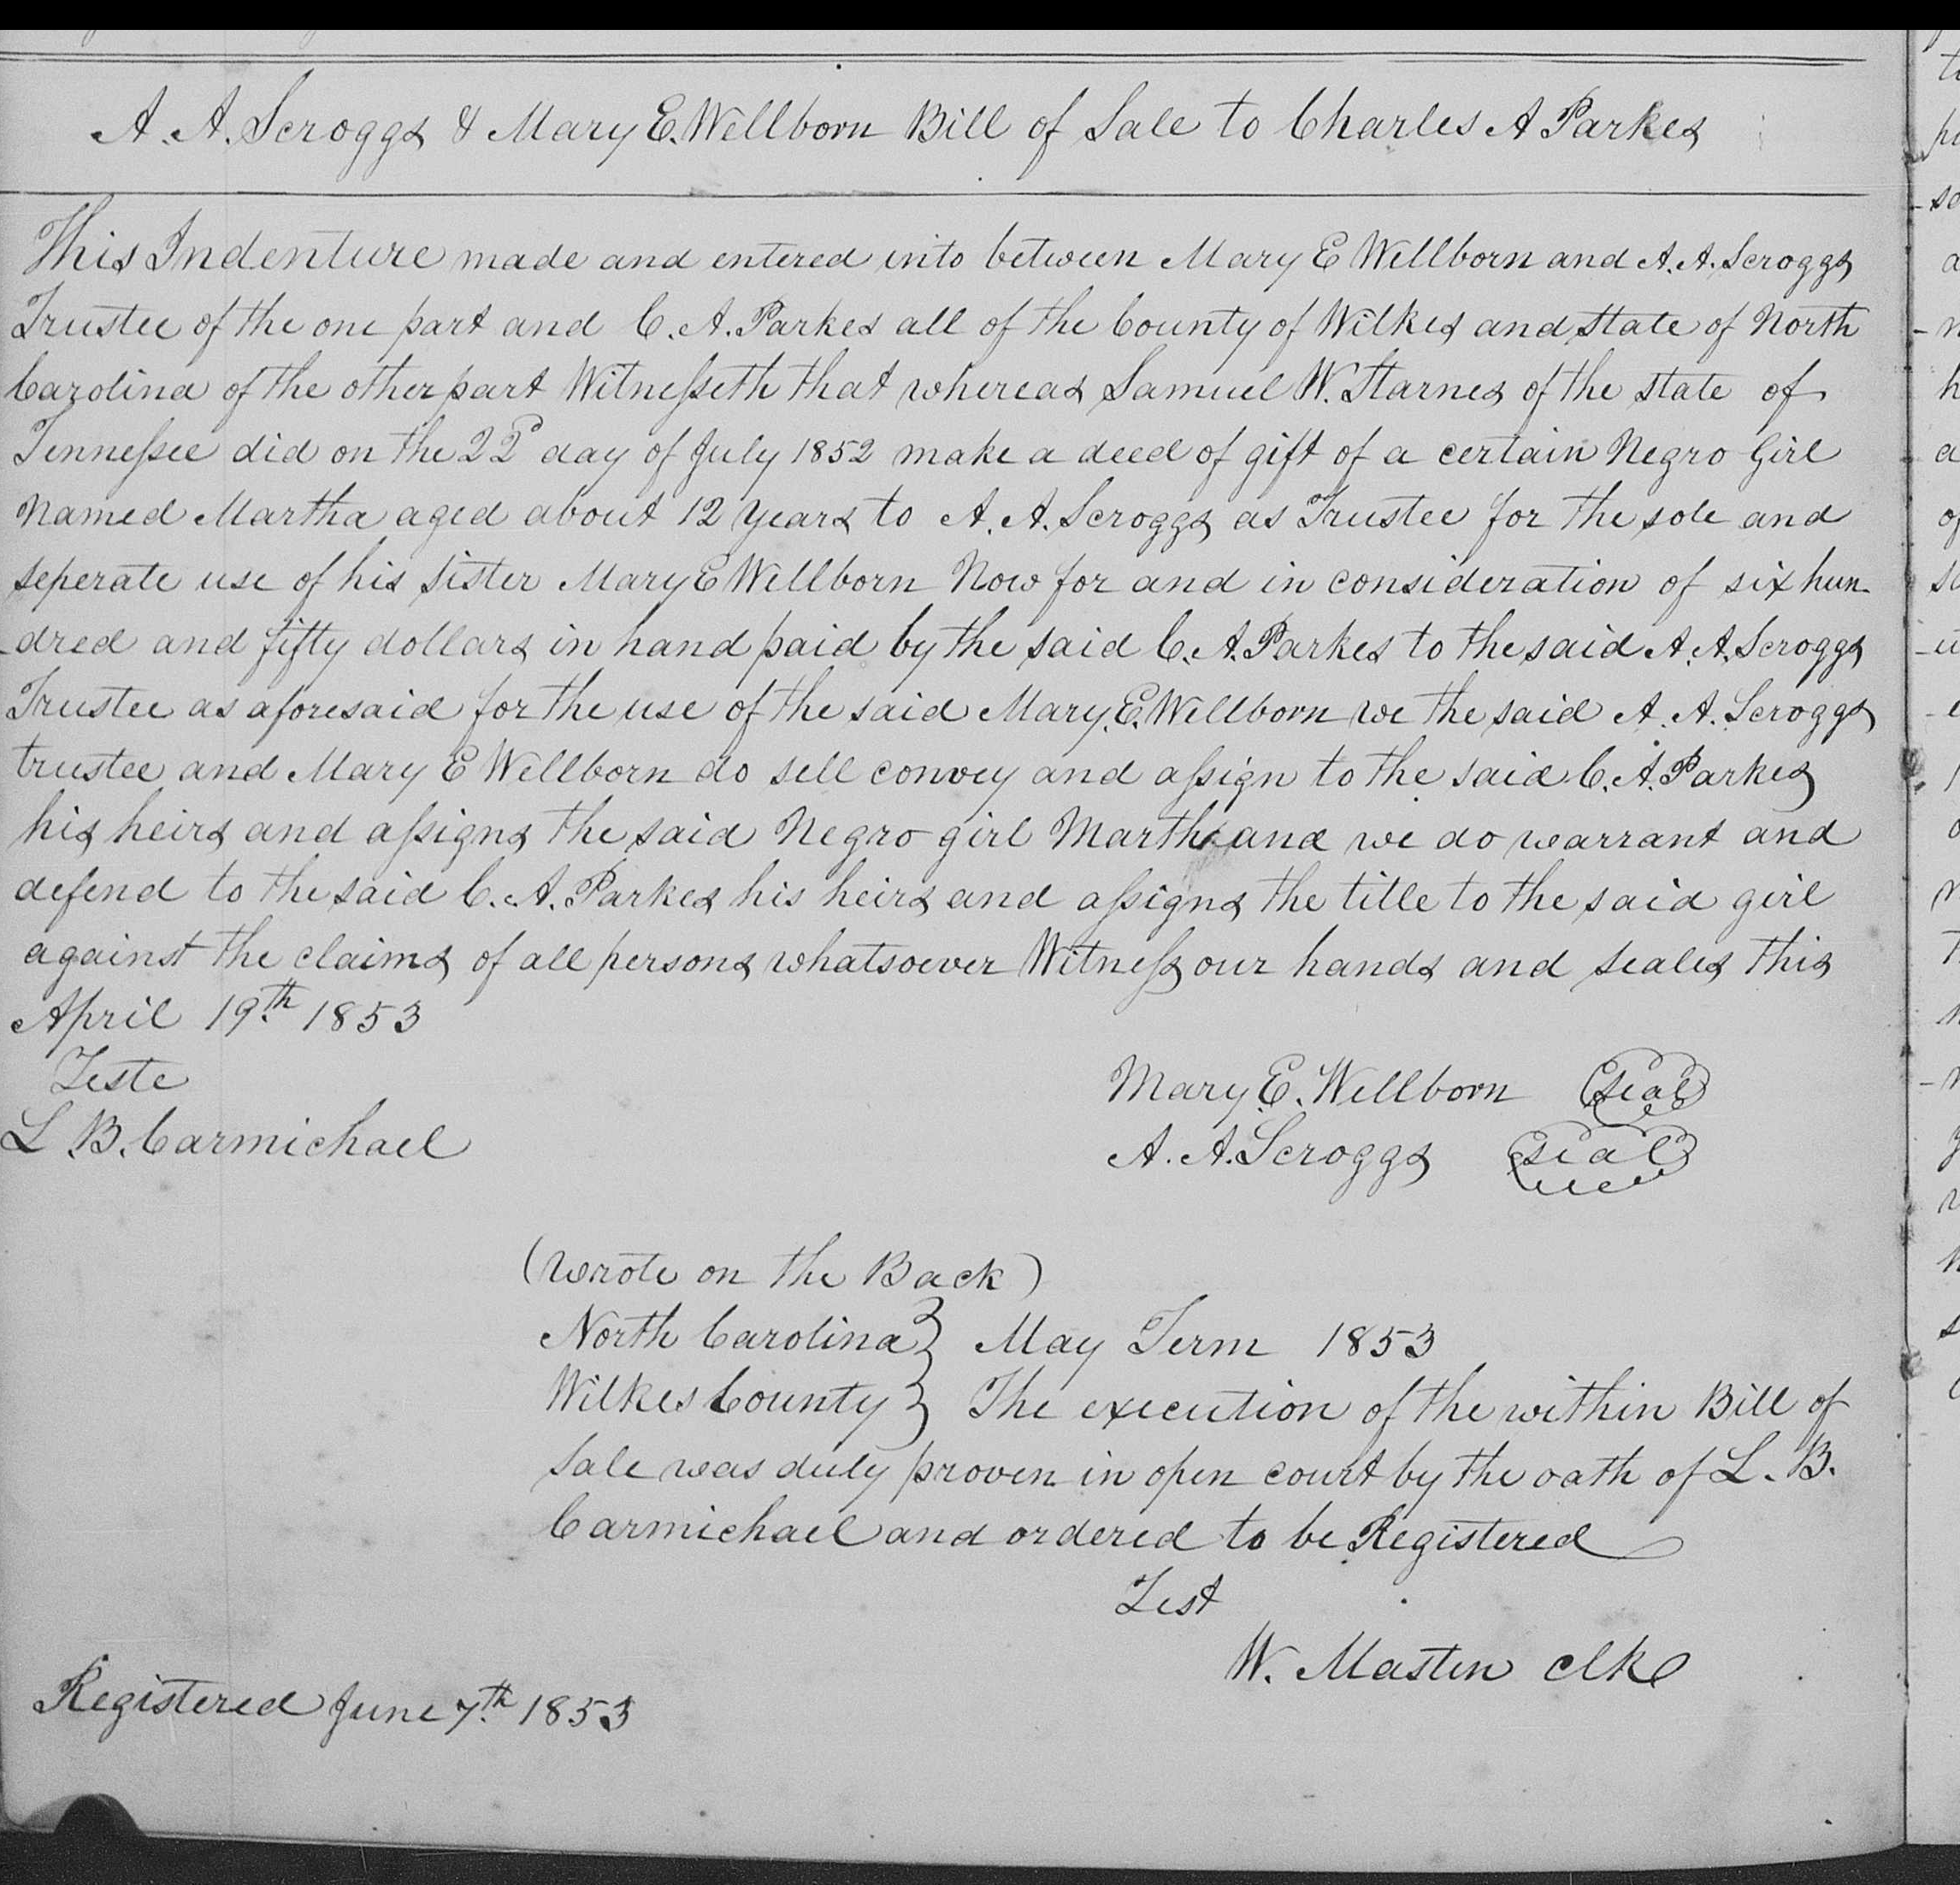 A. A. Scroggs & Mary E. Wellborn Bill of Sale to Charles A Parkes
This Indenture made and entered into between Mary E Wellborn and A. A. Scroggs
Trustee of the one part and C. A. Parkes all of the County of Wilkes and state of North
Carolina of the other part Witnesseth that whereas Samuel W. Starnes of the state of
Tennessee did on the 22d day of July 1852 make a deed of gift of a certain Negro Girl
Named Martha aged about 12 years to A. A. Scroggs as Trustee for the sole and
seperate use of his sister Mary E Wellborn Now for and in consideration of six hun-
-dred and fifty dollars in hand paid by the said C. A. Parkes to the said A. A. Scroggs
Trustee as aforesaid for the use of the said Mary E. Wellborn we the said A. A. Scroggs
trustee and Mary E Wellborn do sell convey and assign to the said C. A. Parkes
his heirs and assigns the said Negro girl Martha and we do warrant and
defend to the said C. A. Parkes his heirs and assigns the title to the said girl
against the claims of all persons whatsoever Witness our hands and seales this
April 19th 1853
Teste
Mary E. Wellborn (seal)
L B. Carmichael
A. A. Scroggs (seal)
(wrote on the Back)
North Carolina } May Term 1853
Wilkes County } The execution of the within Bill of
Sale was duly proven in open court by the oath of L. B.
Carmichael and ordered to be Registered
Test
W. Masten clk
Registered June 7th 1853